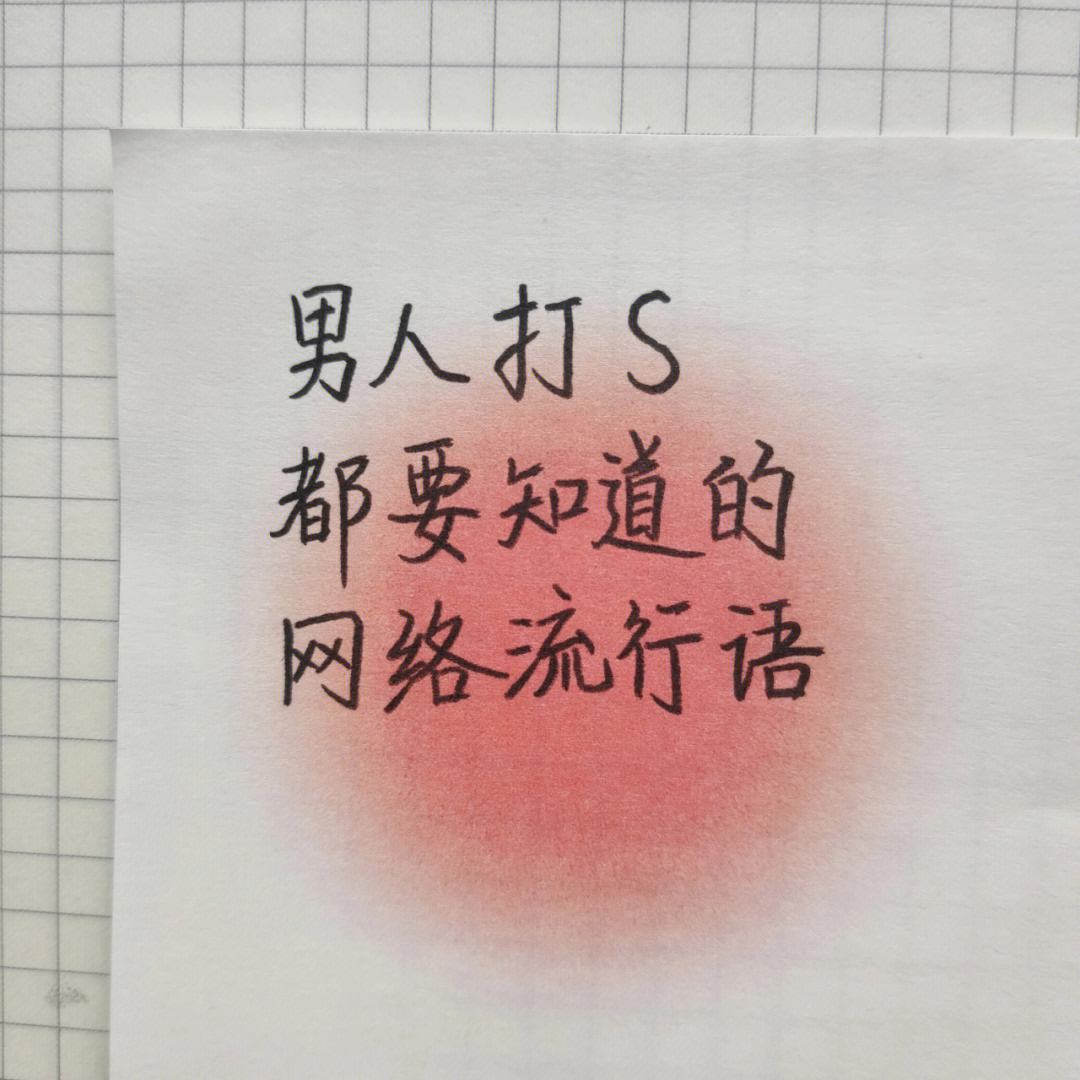 男人打S
都要知道的
网络流行语